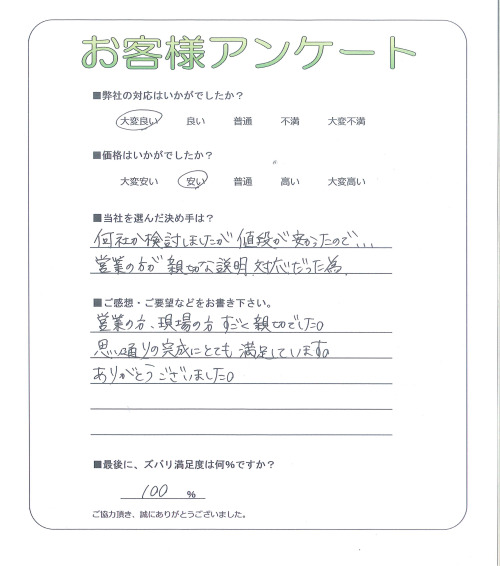 お客様アンケート
■弊社の対応はいかがでしたか？
大変良い 良い 普通 不満 大変不満
■価格はいかがでしたか？
大変安い 安い 普通 高い 大変高い
■当社を選んだ決め手は？
何社か検討しましたが値段が安かったので、、、
営業の方が親切な説明、対応だった為、
■ご感想・ご要望などをお書き下さい。
営業の方、現場の方すごく親切でした。
思い通りの完成にとても満足しています。
ありがとうございました。
■最後に、ズバリ満足度は何％ですか？
100 ％
ご協力頂き、誠にありがとうございました。